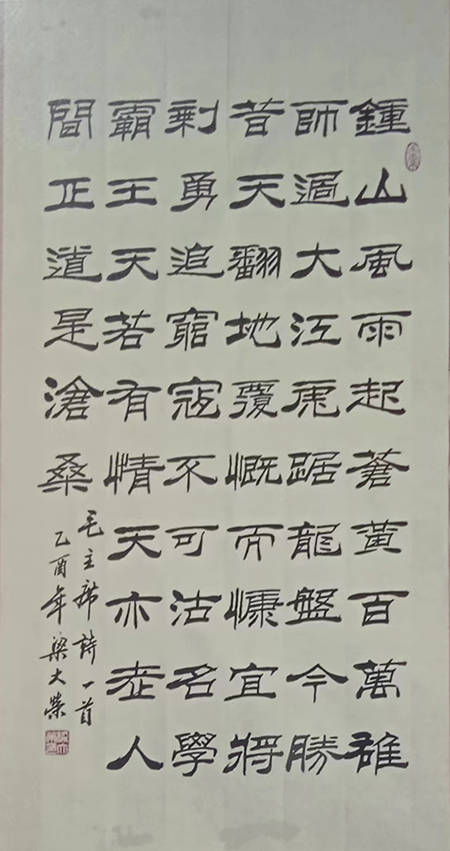 鍾山風雨起蒼黃百萬雄
師過大江虎踞龍盤今勝
昔天翻地覆慨而慷宜將
剩勇追窮寇不可沽名學
霸王天若有情天亦老人
間正道是滄桑
毛主席詩一首
乙酉年梁大榮